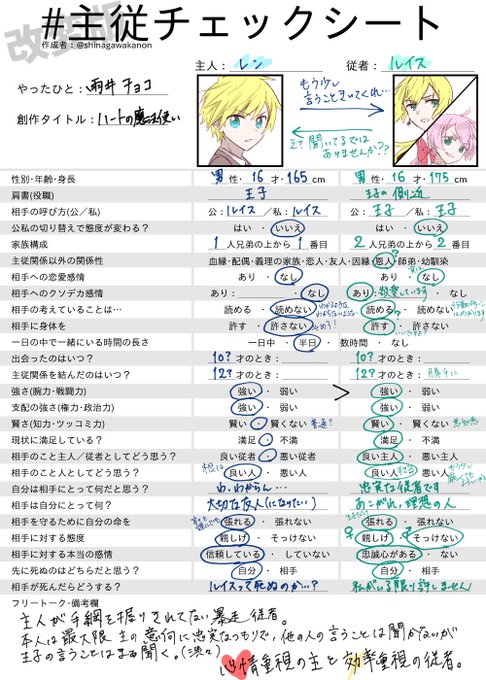 改変版
#主従チェックシート
作成者：@shinagawakanon
主人：レン 従者：ルイス
やったひと：雨井チョコ
創作タイトル：ハートの魔法使い
もう少し言うこときいてくれ…
え？聞いてるではありませんか??
性別・年齢・身長 男性・16才・165cm 男性・16才・175cm
肩書(役職) 王子 王子の側近
相手の呼び方(公／私) 公：ルイス／私：ルイス 公：王子／私：王子
公私の切り替えで態度が変わる？ はい・いいえ はい・いいえ
家族構成 1人兄弟の上から1番目 2人兄弟の上から2番目
主従関係以外の関係性 血縁・配偶・義理の家族・恋人・友人・因縁・恩人・師弟・幼馴染
相手への恋愛感情 あり・なし あり・なし
相手へのクソデカ感情 あり：・なし あり：敬愛しています・なし
相手の考えていることは… 読める・読めない 読める・読めない
相手に身体を 許す・許さない 許す・許さない
一日の中で一緒にいる時間の長さ 一日中・半日・数時間・なし
出会ったのはいつ？ 10?才のとき： 10?才のとき：
主従関係を結んだのはいつ？ 12?才のとき： 12?才のとき：勝手に
強さ(腕力・戦闘力) 強い・弱い > 強い・弱い
支配の強さ(権力・政治力) 強い・弱い 強い・弱い
賢さ(知力・ツッコミ力) 賢い・賢くない 普通? 賢い・賢くない
現状に満足している？ 満足・不満 満足・不満
相手のこと主人／従者としてどう思う？ 良い従者・悪い従者 良い主人・悪い主人
相手のこと人としてどう思う？ 根は 良い人・悪い人 良い人・悪い人
自分は相手にとって何だと思う？ わ、わからん… 忠実な従者です
相手は自分にとって何？ 大切な友人(になりたい) あこがれ、理想の人
相手を守るために自分の命を 張れる・張れない 張れる・張れない
相手に対する態度 親しげ・そっけない 親しげ・そっけない
相手に対する本当の感情 信頼している・していない 忠誠心がある・ない
先に死ぬのはどちらだと思う？ 自分・相手 自分・相手
相手が死んだらどうする？ ルイスって死ぬのか…？ 私がいる限り許しません
フリートーク・備考欄
主人が手綱を握りきれてない暴走従者。
本人は最大限主の意向に忠実なつもりで、他の人の言うことは聞かないが
王子の言うことはまぁ聞く。(渋々)
心情重視の主と効率重視の従者。